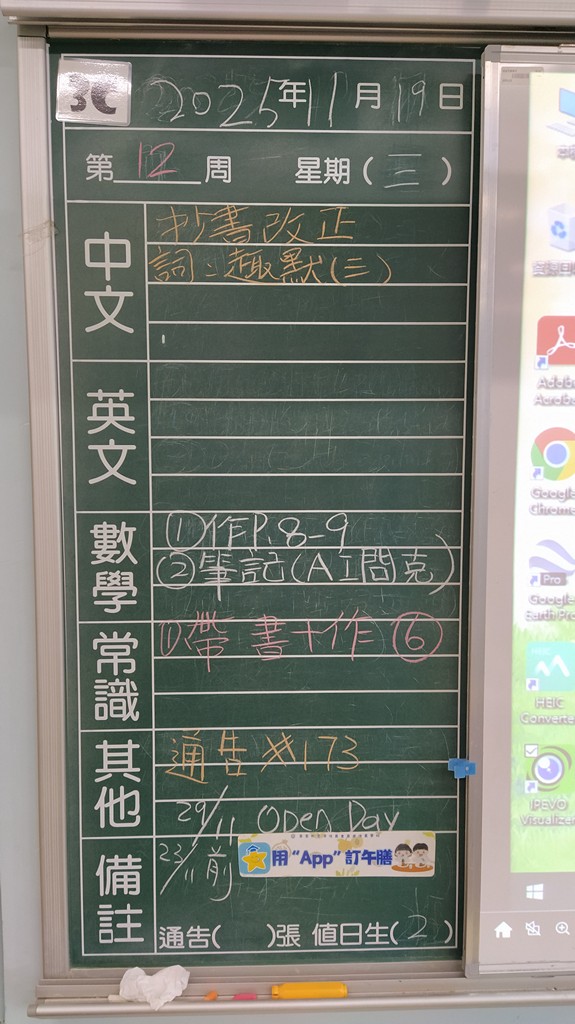 3C
2025年11月19日
第12周 星期(三)
中文
抄書改正
詞:趣默(三)
英文
數學
①作P.8-9
②筆記(AI問克)
常識
①帶書+作⑥
其他
通告#173
29/11 Open Day
備註
23/11前
用“App”訂午膳
通告( )張 值日生(2)
Adobe
Acrobat
Google
Chrome
Pro
Google
Earth Pro
HEIC
HEIC
Converter
IPEVO
Visualizer